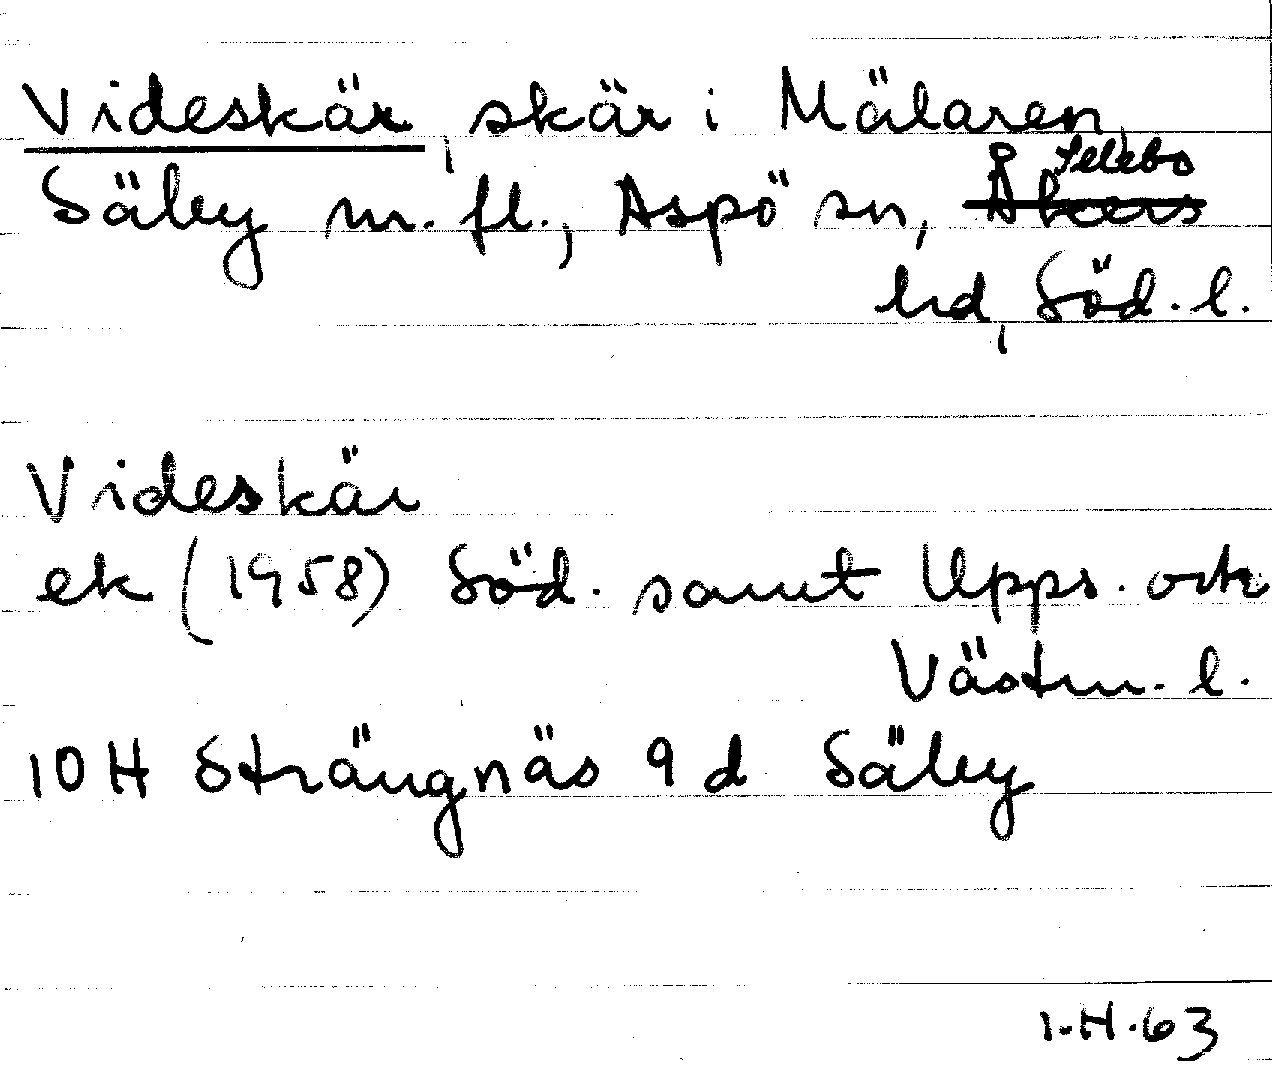 Videskär, skär i Mälaren,
Säby m. fl., Aspö sn, Åkers Selebo
hd, Söd. l.
Videskär
ek (1958) Söd. samt Upps. och
Västm. l.
10 H Strängnäs 9 d Säby
I.H.63